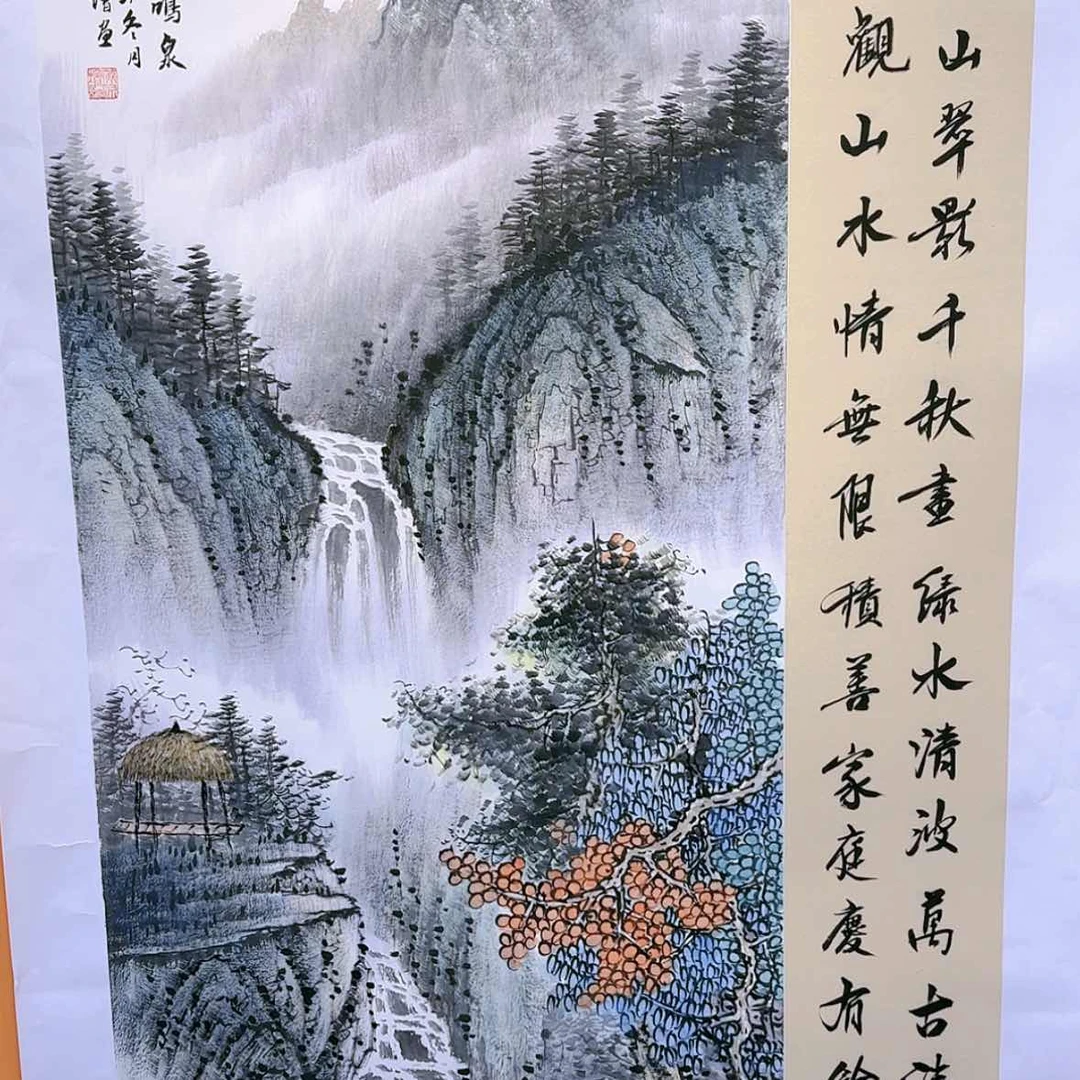 山翠影千秋畫绿水清波萬古
觀山水情無限積善家庭慶有餘
鳴泉
冬月